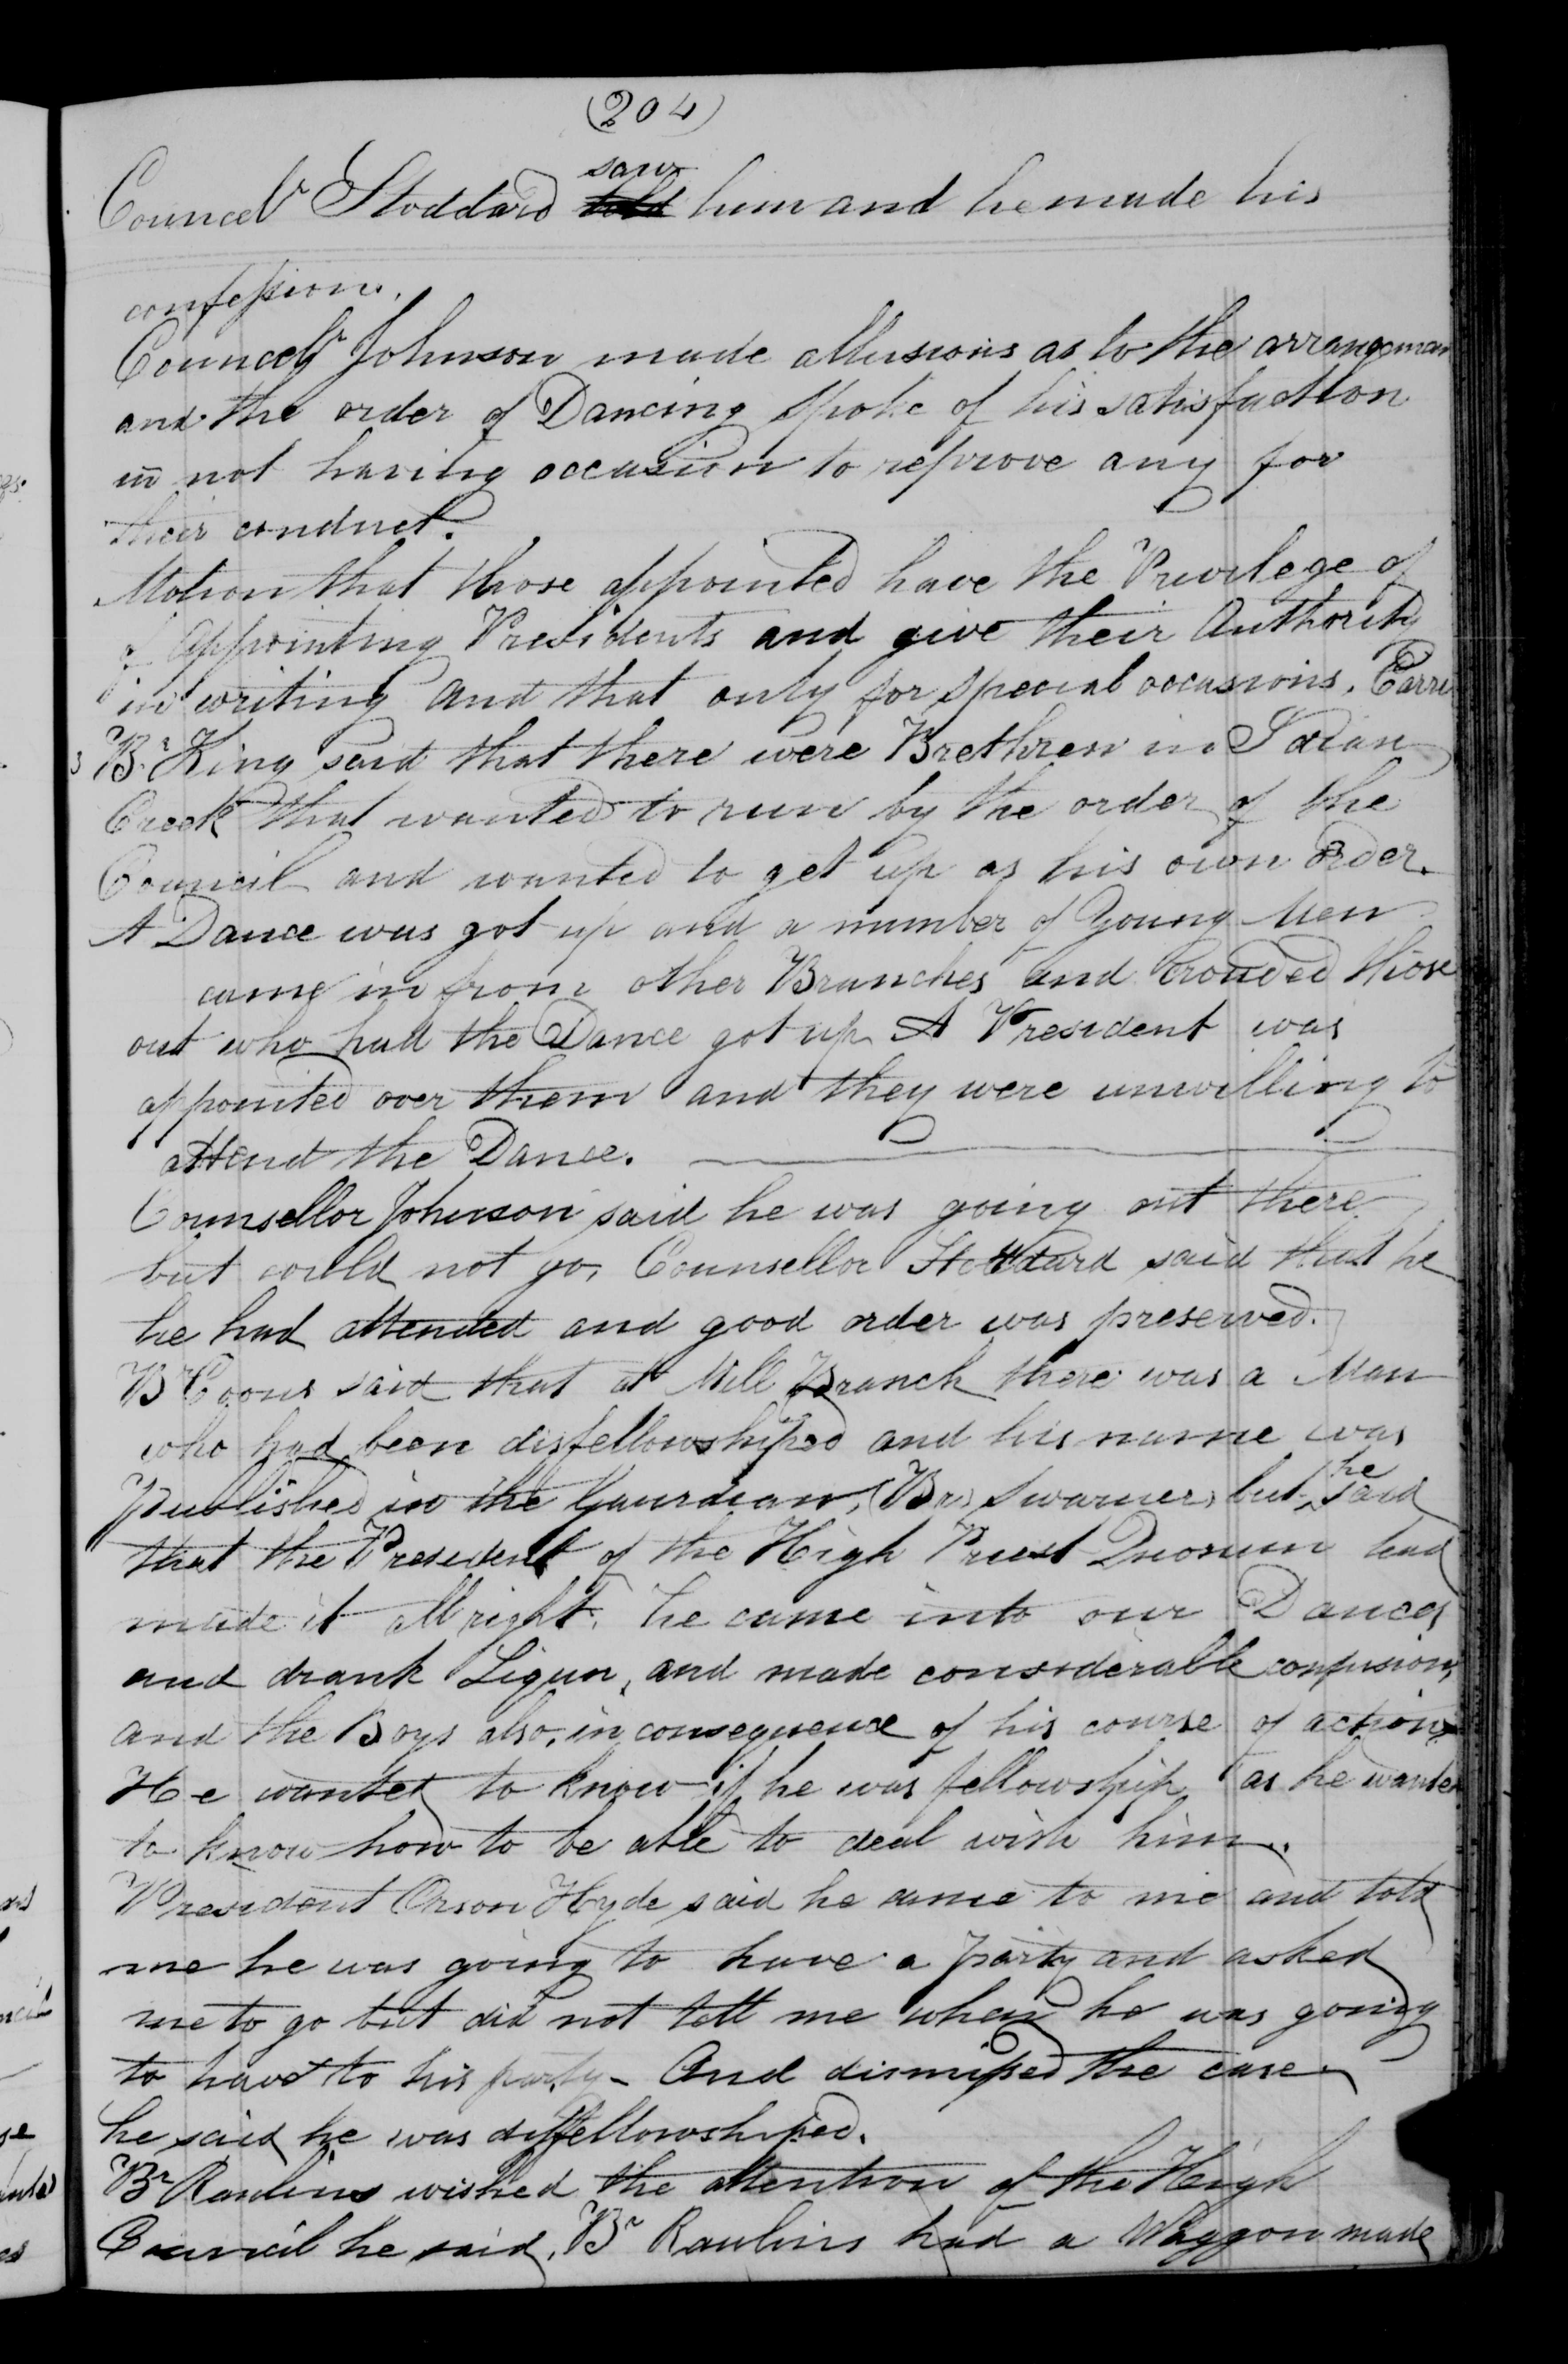 (204)
Councelr Stoddard told saw him and he made his
confession.
Councelr Johnson made allusions as to the arrangemen
and the order of Dancing Spoke of his satisfaction
in not having occasion to reprove any for
their conduct.
Motion that those appointed have the Privilege of
of appointing Presidents and give their Authority
in writing and that only for special occasions. Carri
Br King said that there were Brethren in
Creek that wanted to run by the order of the
Council and wanted to get up as his own order.
A Dance was got up and a number of Young Men
came in from other Branches and Crouded those
out who had the Dance got up A President was
appointed over them and they were unwilling to
attend the Dance.
Counsellor Johnson said he was going out there
but could not go, Counsellor Stoddard said that he
he had attended and good order was preserved.
Br Coons said that at Mill Branch there was a Man
who had been disfellowshiped and his name was
published in the Gaurdian, (Br) Swarner, but he said
that the President of the High Priest Quorum had
made it all right. he came into our Dances
and drank Liqur, and made considerable confusion,
and the Boys also, in consequence of his course of action
He wanted to know if he was fellowship as he wanted
to know how to be able to deal with him.
President Orson Hyde said he came to me and told
me he was going to have a party and asked
me to go but did not tell me when he was going
to have to his party - And dismissed the case
he said he was disfellowshiped.
Br Rawlins wished the attention of the High
Council he said, Br Rawlins had a Waggon made